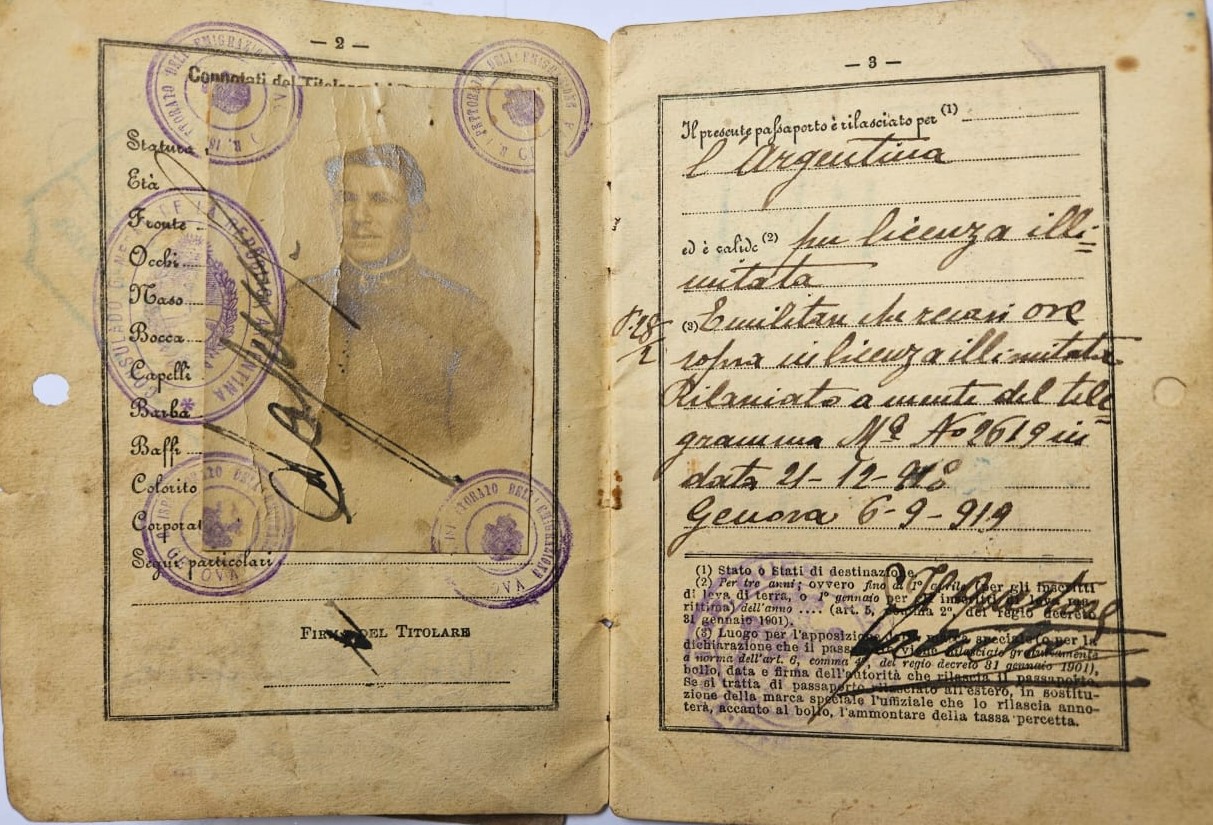 — 2 —
Connotati del Titolare
Statura
Età
Fronte
Occhi
Naso
Bocca
Capelli
Barba
Baffi
Colorito
Corporat
Segni particolari
FIRMA DEL TITOLARE
R. ISPETTORATO DELL'EMIGRAZIONE
GENOVA
CONSULADO GENERAL DE LA REPUBLICA ARGENTINA
— 3 —
Il presente passaporto è rilasciato per (1)
l'Argentina
ed è valido (2) per licenza illi=
mitata
(3) E militare che recasi ove
sopra in licenza illimitata
Rilasciato a mente del tele=
gramma Mo No 2619 in
data 21-12-918
Genova 6-9-919
(1) Stato o Stati di destinazione.
(2) Per tre anni; ovvero fino al 1° aprile (per gli inscritti
di leva di terra, o 1° gennaio per
rittima) dell'anno .... (art. 5, comma 2°, del regio decreto
31 gennaio 1901).
(3) Luogo per l'apposizione della marca speciale o per la
dichiarazione che il passaporto viene rilasciato gratuitamente
a norma dell'art. 6, comma, del regio decreto 31 gennaio 1901),
bollo, data e firma dell'autorità che rilascia il passaporto.
Se si tratta di passaporto rilasciato all'estero, in sostitu-
zione della marca speciale l'uffiziale che lo rilascia anno-
terà, accanto al bollo, l'ammontare della tassa percetta.